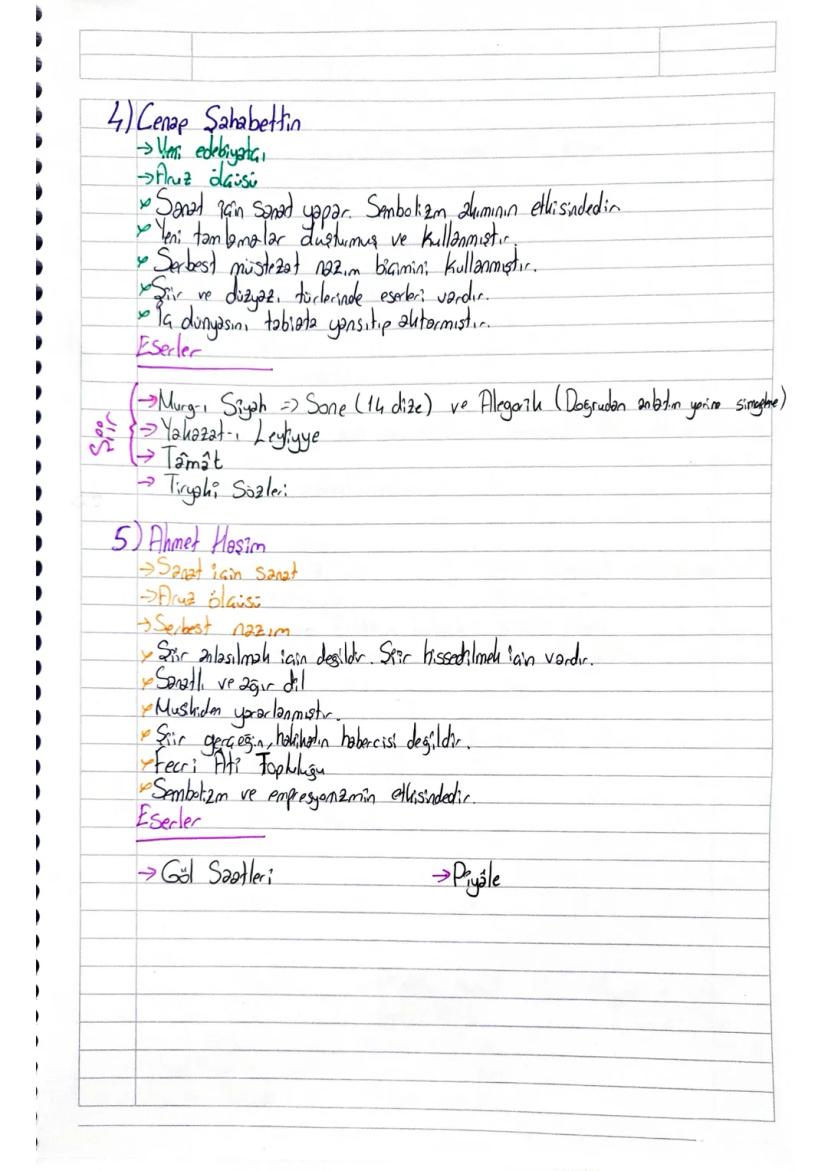 4) Cenap Şahabettin
→ Yeni edebiyatçı
→ Aruz ölçüsü
* Sanat için sanat yapar. Sembolizm akımının etkisindedir.
* Yeni tamlamalar oluşturmuş ve kullanmıştır.
* Serbest müstezat nazım biçimini kullanmıştır.
* Şiir ve düzyazı türlerinde eserleri vardır.
* İç dünyasını tabiata yansıtıp aktarmıştır.
Eserler
Şiir
→ Murg-ı Siyah => Sone (14 dize) ve Alegorik (Doğrudan anlatım yerine simgeleme)
→ Yakazat-ı Leyliyye
→ Tâmât
→ Tiryaki Sözleri
5) Ahmet Haşim
→ Sanat için sanat
→ Aruz ölçüsü
→ Serbest nazım
* Şiir anlaşılmak için değildir. Şiir hissedilmek için vardır.
* Sanatlı ve ağır dil
* Musikiden yararlanmıştır.
* Şiir gerçeğin, hakikatin habercisi değildir.
* Fecri Âti Topluluğu
* Sembolizm ve empresyonizmin etkisindedir.
Eserler
→ Göl Saatleri → Piyâle